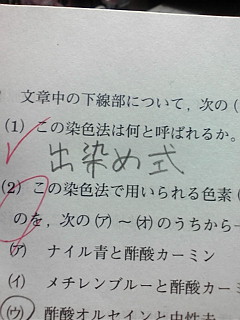 文章中の下線部について，次の（
(1) この染色法は何と呼ばれるか。
出染め式
(2) この染色法で用いられる色素（
のを，次の(ア)～(オ)のうちから一
(ア) ナイル青と酢酸カーミン
(イ) メチレンブルーと酢酸カーミ
(ウ) 酢酸オルセインと中性赤